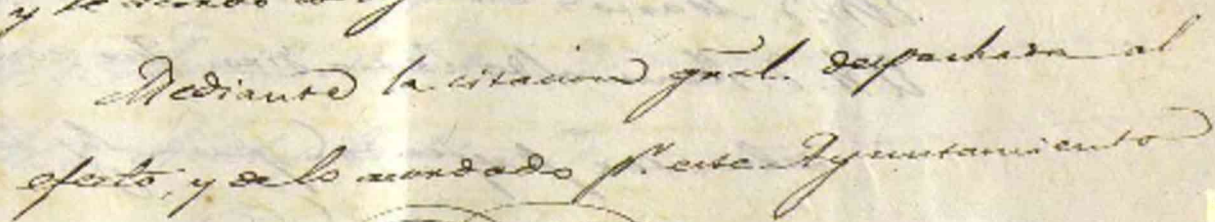 Mediante la citacion gral. despachada al
efecto, y de lo acordado pr. este Ayuntamiento